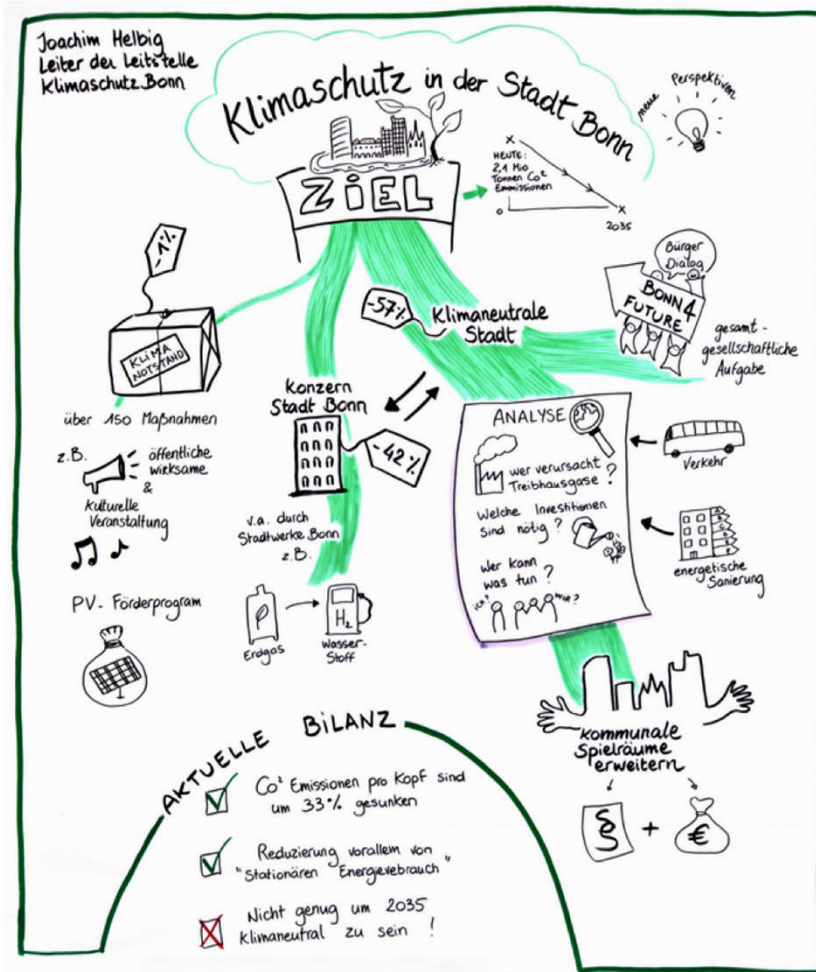 Joachim Helbig
Leiter der Leitstelle
Klimaschutz Bonn
Klimaschutz in der Stadt Bonn
neue Perspektiven
ZiEL
HEUTE:
2,1 Mio
Tonnen Co²
Emmissionen
0
2035
-1%
KLIMA
NOTSTAND
über 150 Maßnahmen
z.B.
öffentliche
wirksame
&
Kulturelle
Veranstaltung
PV-Förderprogram
Konzern
Stadt Bonn
-42%
v.a. durch
Stadtwerke Bonn
z.B.
Erdgas
H₂
Wasser-
Stoff
-57%
Klimaneutrale
Stadt
Bürger
Dialog
BONN4
FUTURE
gesamt-
gesellschaftliche
Aufgabe
ANALYSE
wer verursacht
Treibhausgase?
Welche Investitionen
sind nötig?
wer kann
was tun?
ICH?
WIR?
Verkehr
energetische
Sanierung
kommunale
Spielräume
erweitern
§ + €
AKTUELLE BiLANZ
Co² Emissionen pro Kopf sind
um 33% gesunken
Reduzierung vorallem von
"Stationären Energievebrauch"
Nicht genug um 2035
Klimaneutral zu sein!